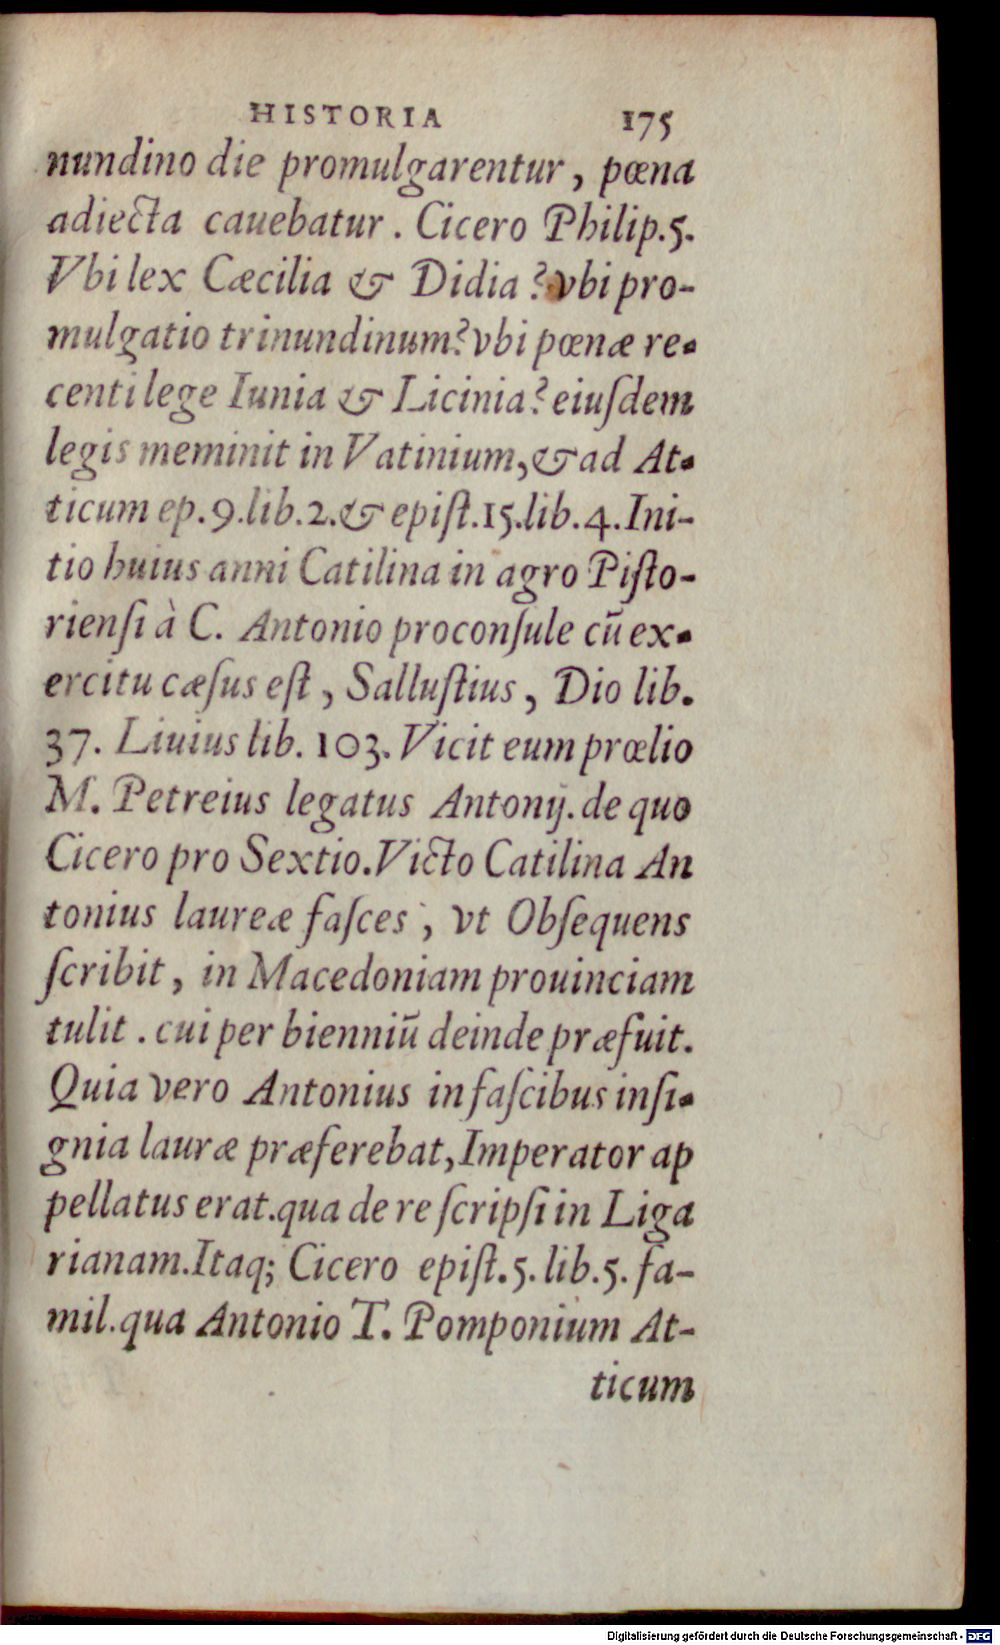 HISTORIA 175
nundino die promulgarentur, pœna
adiecta cauebatur. Cicero Philip.5.
Vbi lex Cæcilia & Didia? vbi pro-
mulgatio trinundinum? vbi pœnæ re-
centi lege Iunia & Licinia? eiuſdem
legis meminit in Vatinium, & ad At-
ticum ep. 9. lib. 2. & epiſt. 15. lib. 4. Ini-
tio huius anni Catilina in agro Piſto-
rienſi à C. Antonio proconſule cū ex-
ercitu cæſus eſt, Salluſtius, Dio lib.
37. Liuius lib. 103. Vicit eum prælio
M. Petreius legatus Antonij. de quo
Cicero pro Sextio. Victo Catilina An
tonius laureæ faſces, vt Obſequens
ſcribit, in Macedoniam prouinciam
tulit. cui per bienniū deinde præfuit.
Quia vero Antonius in faſcibus inſi-
gnia lauræ præferebat, Imperator ap
pellatus erat. qua de re ſcripſi in Liga
rianam. Itaq; Cicero epiſt. 5. lib. 5. fa-
mil. qua Antonio T. Pomponium At-
ticum
Digitalisierung gefördert durch die Deutsche Forschungsgemeinschaft - DFG